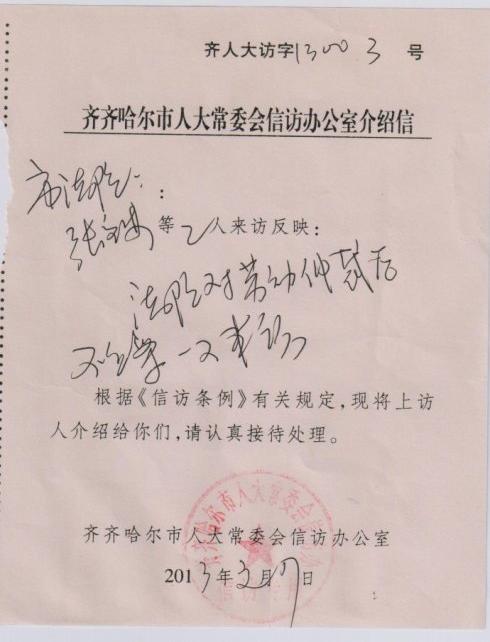 齐人大访字13003号
齐齐哈尔市人大常委会信访办公室介绍信
市法院：
张 等2人来访反映：
法院对劳动仲裁后
不
根据《信访条例》有关规定，现将上访
人介绍给你们，请认真接待处理。
齐齐哈尔市人大常委会信访办公室
2013年 月 日